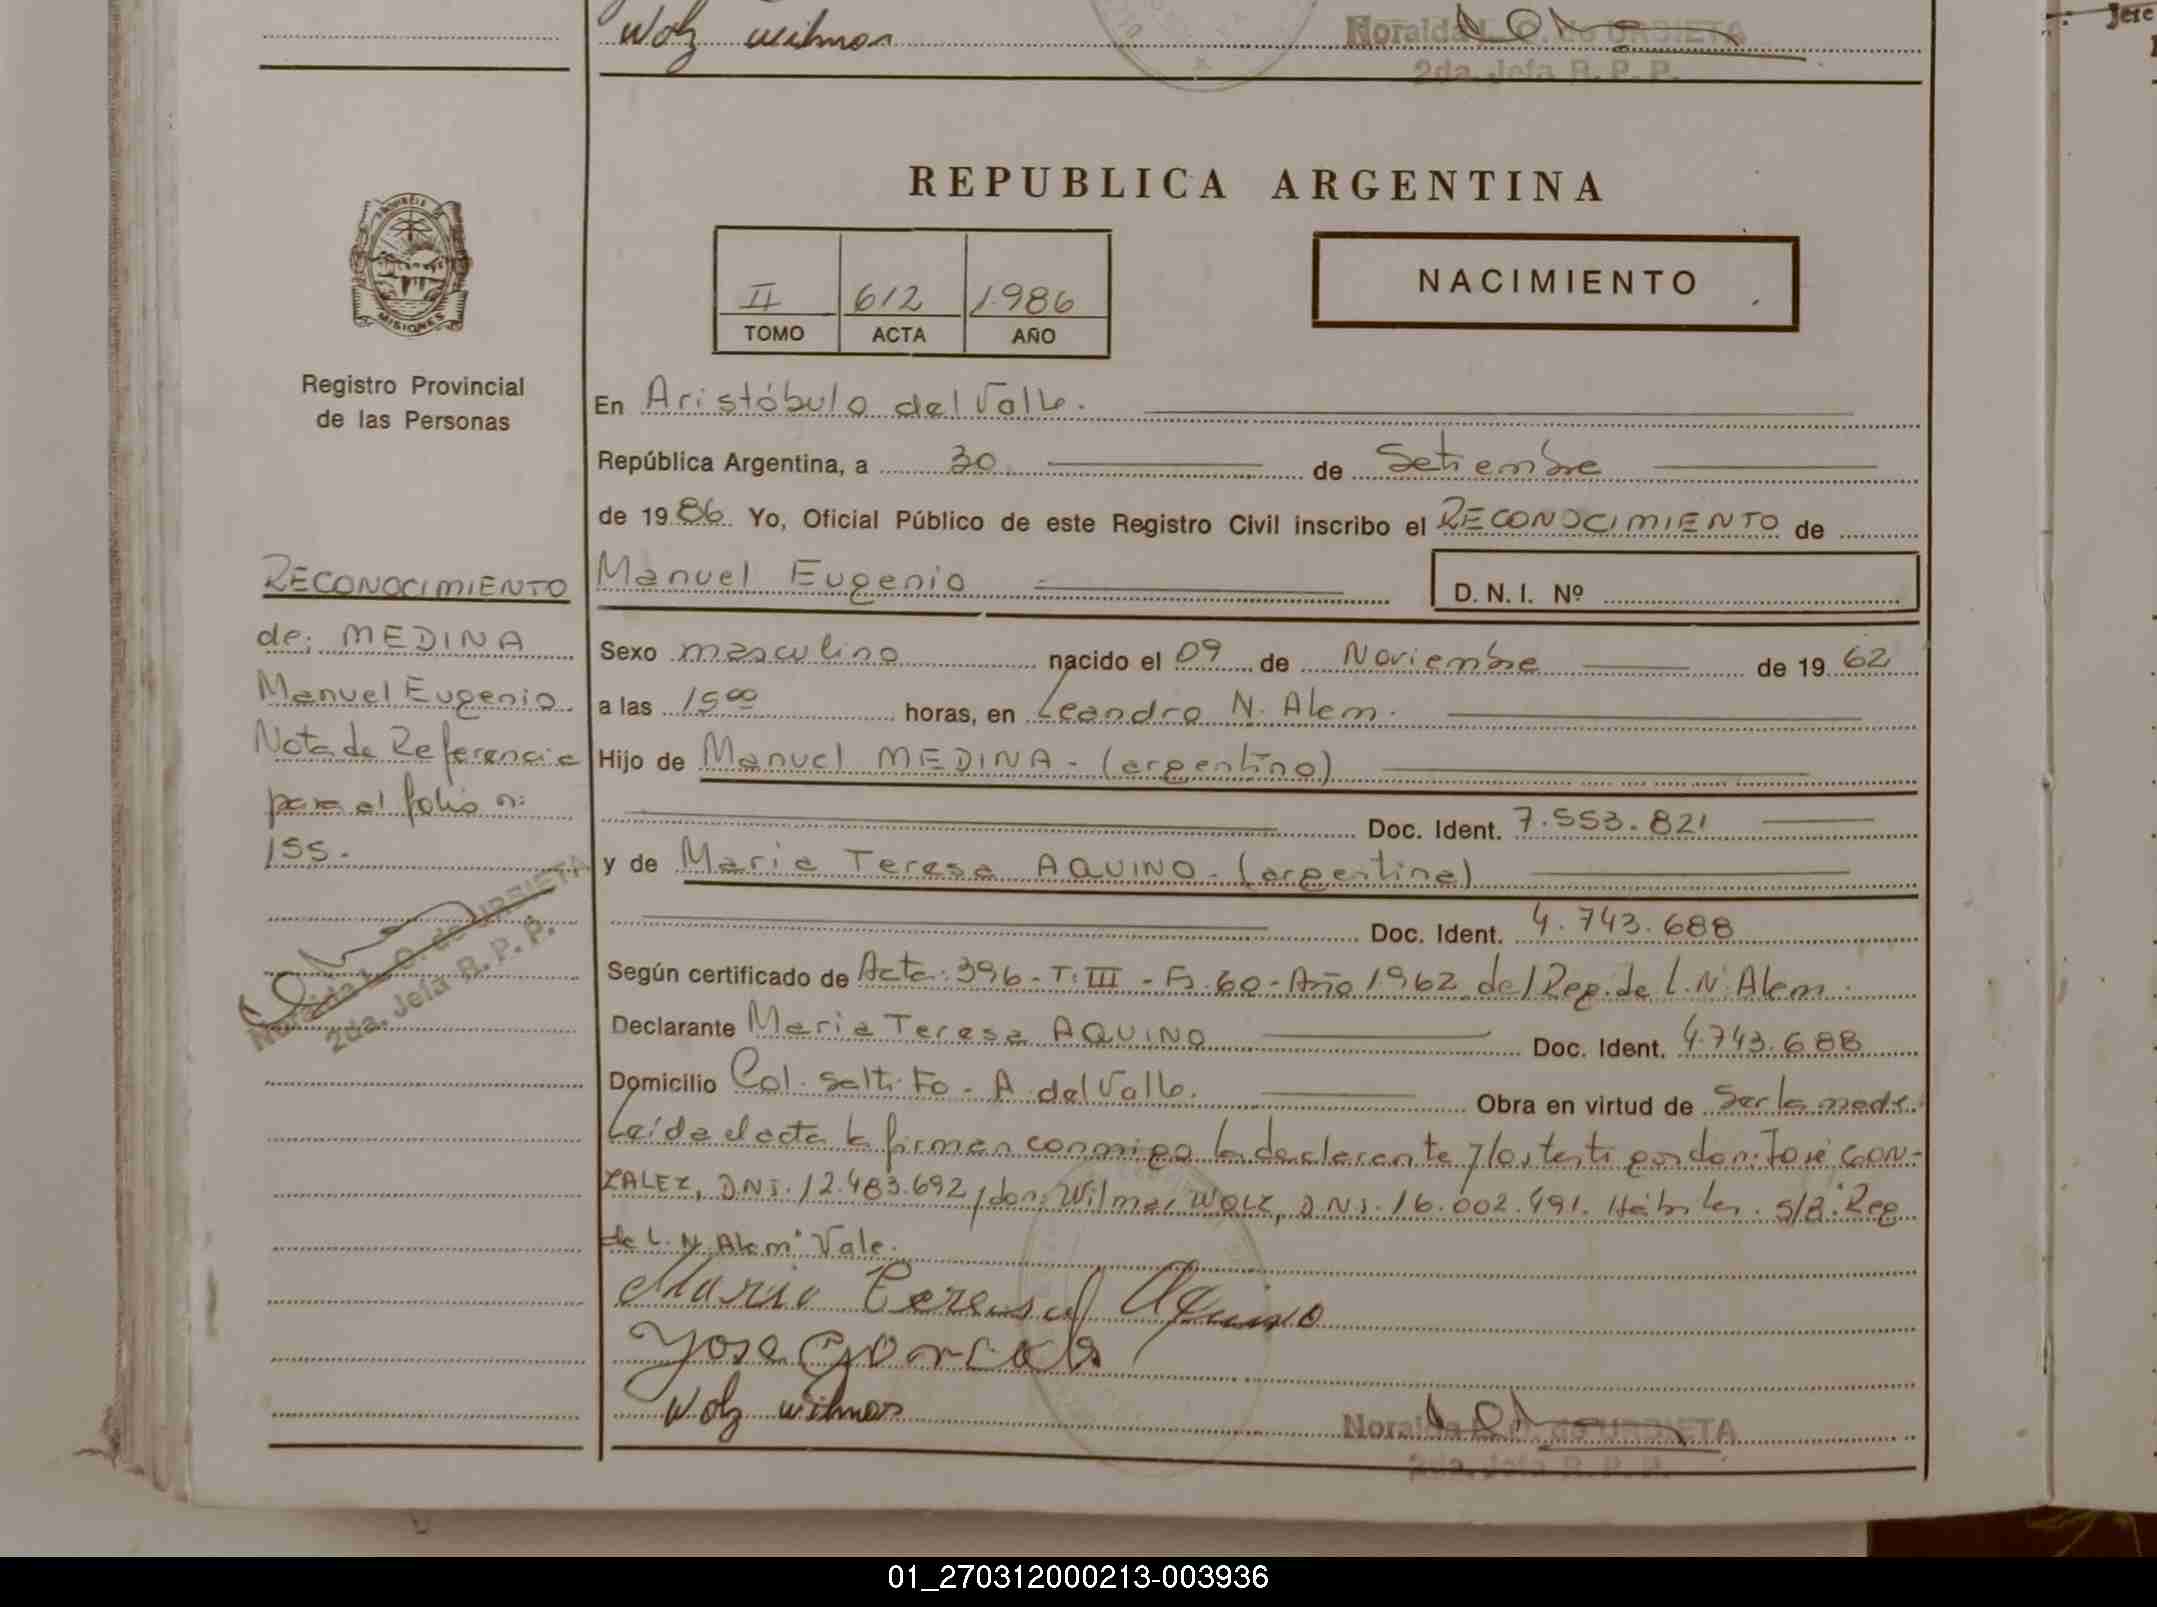 Wolz wilmar
Noralda L. O. de URBIETA
2da. Jefa R. P. P.
REPUBLICA ARGENTINA
II 612 1.986
TOMO ACTA AÑO
NACIMIENTO
PROVINCIA DE
MISIONES
Registro Provincial
de las Personas
En Aristóbulo del Valle.
República Argentina, a 30 de Setiembre
de 1986. Yo, Oficial Público de este Registro Civil inscribo el RECONOCIMIENTO de
Manuel Eugenio D. N. I. Nº
Sexo masculino nacido el 09 de Noviembre de 1962
a las 15 00 horas, en Leandro N. Alem.
Hijo de Manuel MEDINA - (argentino)
Doc. Ident. 7.553.821
y de Maria Teresa AQUINO - (argentina)
Doc. Ident. 4.743.688
Según certificado de Acta: 396 - T: III - Fº 60 - Año 1962 del Reg. de L. N. Alem.
Declarante Maria Teresa AQUINO Doc. Ident. 4.743.688
Domicilio Col. Salti. Fo - A. del Valle. Obra en virtud de Ser la madre.
Leída el acta la firman conmigo la declarante y los testigos don: José GON-
ZALEZ, DNI. 12.483.692 y don: Wilmar WOLZ, DNI. 16.002.491. Hábiles. S/R: "Reg
de L. N. Alem" Vale.
Maria Teresa Aquino
Jose
Wolz wilmar
Noralda L. O. de URBIETA
2da. Jefa R. P. P.
RECONOCIMIENTO
de: MEDINA
Manuel Eugenio.
Nota de Referencia
para el folio n:
155.
Noralda L. O. de URBIETA
2da. Jefa R. P. P.
01_270312000213-003936